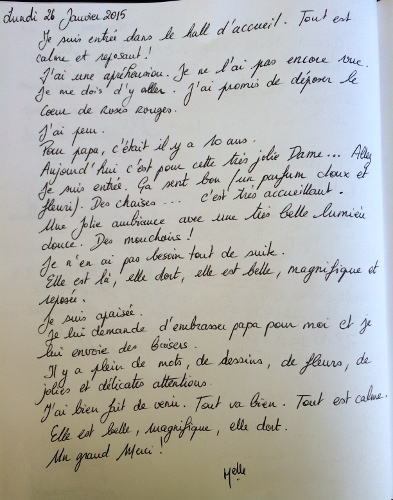 Lundi 26 Janvier 2015
Je suis entrée dans le hall d'accueil. Tout est
calme et reposant !
J'ai une apréhension. Je ne l'ai pas encore vue.
Je me dois d'y aller. J'ai promis de déposer le
Cœur de Roses Rouges.
J'ai peur.
Pour papa, c'était il y a 10 ans.
Aujourd'hui c'est pour cette très jolie Dame... Allez
Je suis entrée. Ça sent bon (un parfum doux et
fleuri). Des chaises... c'est très accueillant.
Une Jolie ambiance avec une très belle lumière
douce. Des mouchoirs !
Je n'en ai pas besoin tout de suite.
Elle est là, elle dort, elle est belle, magnifique et
reposée.
Je suis apaisée.
Je lui demande d'embrasser papa pour moi et je
lui envoie des baisers.
Il y a plein de mots, de dessins, de fleurs, de
jolies et délicates attentions.
J'ai bien fait de venir. Tout va bien. Tout est calme.
Elle est belle, magnifique, elle dort.
Un grand Merci !
Melle